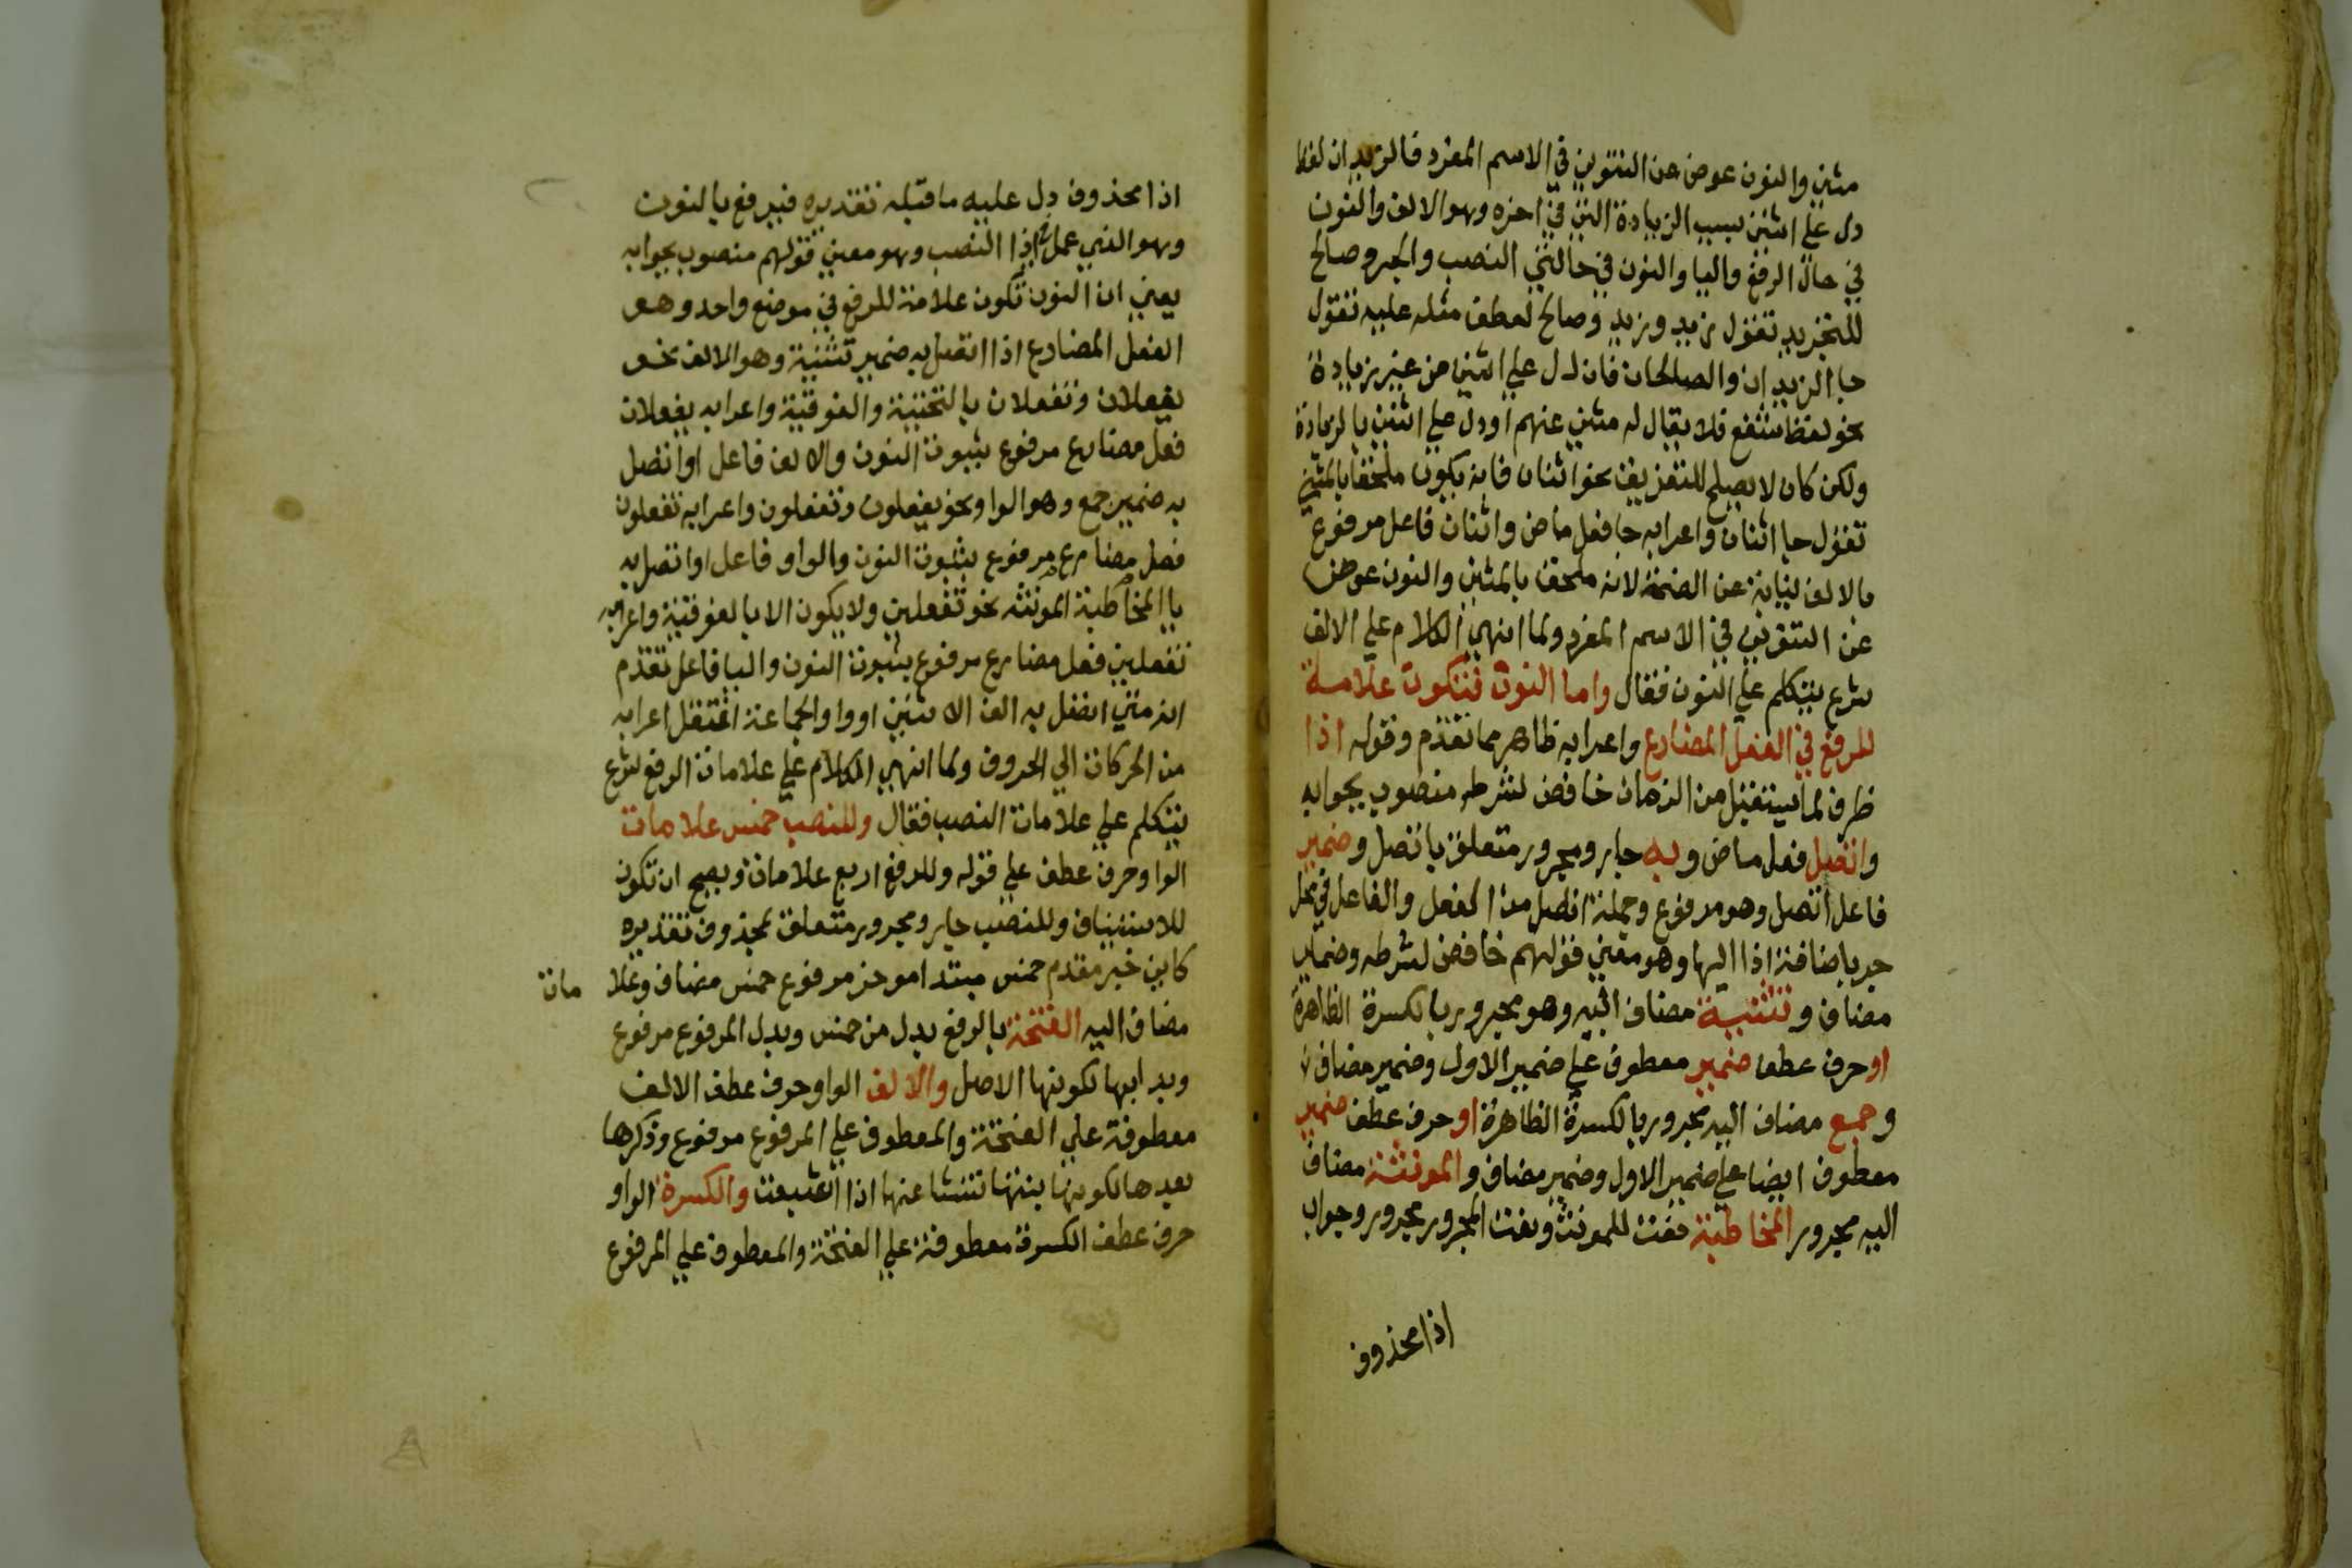 مثني والنون عوض عن التنوين في الاسم المفرد فالزيدان لفظ
دل علي اثنين بسبب الزيادة التي في اخره وهو الالف والنون
في حال الرفع واليا والنون في حالتي النصب والجر وصالح
للتجريد تقول زيد وزيد وصالح لعطف مثله عليه تقول
جا الزيدان والصالحان فان دل علي اثنين من غير زيادة
نحو لفظ شفع فلا يقال له مثني عنهم اودل علي اثنين بالزيادة
ولكن كان لا يصلح للتفريق نحو اثنان فانه يكون ملحقا بالمثني
تقول جا اثنان واعرابه جا فعل ماض واثنان فاعل مرفوع
بالالف نيابة عن الضمة لانه ملحق بالمثني والنون عوض
عن التنوين في الاسم المفرد ولما انهي الكلام علي الالف
شرع يتكلم علي النون فقال واما النون فتكون علامة
للرفع في الفعل المضارع واعرابه ظاهر مما تقدم وقوله اذا
ظرف لما يستقبل من الزمان خافض لشرطه منصوب بجوابه
واتصل فعل ماض وبه جار ومجرور متعلق باتصل وضمير
فاعل اتصل وهو مرفوع وجملة اتصل من الفعل والفاعل في محل
جر باضافة اذا اليها وهو معني قولهم خافض لشرطه وضمير
مضاف وتثنية مضاف اليه وهو مجرور بالكسرة الظاهرة
او حرف عطف ضمير معطوف علي ضمير الاول وضمير مضاف
وجمع مضاف اليه مجرور بالكسرة الظاهرة او حرف عطف ضمير
معطوف ايضا علي ضمير الاول وضمير مضاف والمونثة مضاف
اليه مجرور المخاطبة نعت للمونث ونعت المجرور مجرور وجواب
اذا محذوف
اذا محذوف دل عليه ما قبله تقديره فيرفع بالنون
وهو الذي عمل في اذا النصب وهو معني قولهم منصوب بجوابه
يعني ان النون تكون علامة للرفع في موضع واحد وهو
الفعل المضارع اذا اتصل به ضمير تثنية وهو الالف نحو
يفعلان وتفعلان بالتحتية والفوقية واعرابه يفعلان
فعل مضارع مرفوع بثبوت النون والالف فاعل او اتصل
به ضمير جمع وهو الواو نحو يفعلون وتفعلون واعرابه تفعلون
فعل مضارع مرفوع بثبوت النون والواو فاعل او اتصل به
يا المخاطبة المونثه نحو تفعلين ولا يكون الا بالفوقية واعرابه
تفعلين فعل مضارع مرفوع بثبوت النون واليا فاعل تقدم
انه متي اتصل به الف الاثنين او واو الجماعة انتقل اعرابه
من الحركات الي الحروف ولما انهي الكلام علي علامات الرفع شرع
يتكلم علي علامات النصب فقال وللنصب خمس علامات
الواو حرف عطف علي قوله وللرفع اربع علامات ويصح ان تكون
للاستيناف وللنصب جار ومجرور متعلق بمحذوف تقديره
كاين خبر مقدم خمس مبتدا موخر مرفوع خمس مضاف وعلا مات
مضاف اليه الفتحة بالرفع بدل من خمس وبدل المرفوع مرفوع
وبدا بها لكونها الاصل والالف الواو حرف عطف الالف
معطوفة علي الفتحة والمعطوف علي المرفوع مرفوع وذكرها
بعدها لكونها بنتها تنشا عنها اذا اشبعت والكسرة الواو
حرف عطف الكسرة معطوفة علي الفتحة والمعطوف علي المرفوع